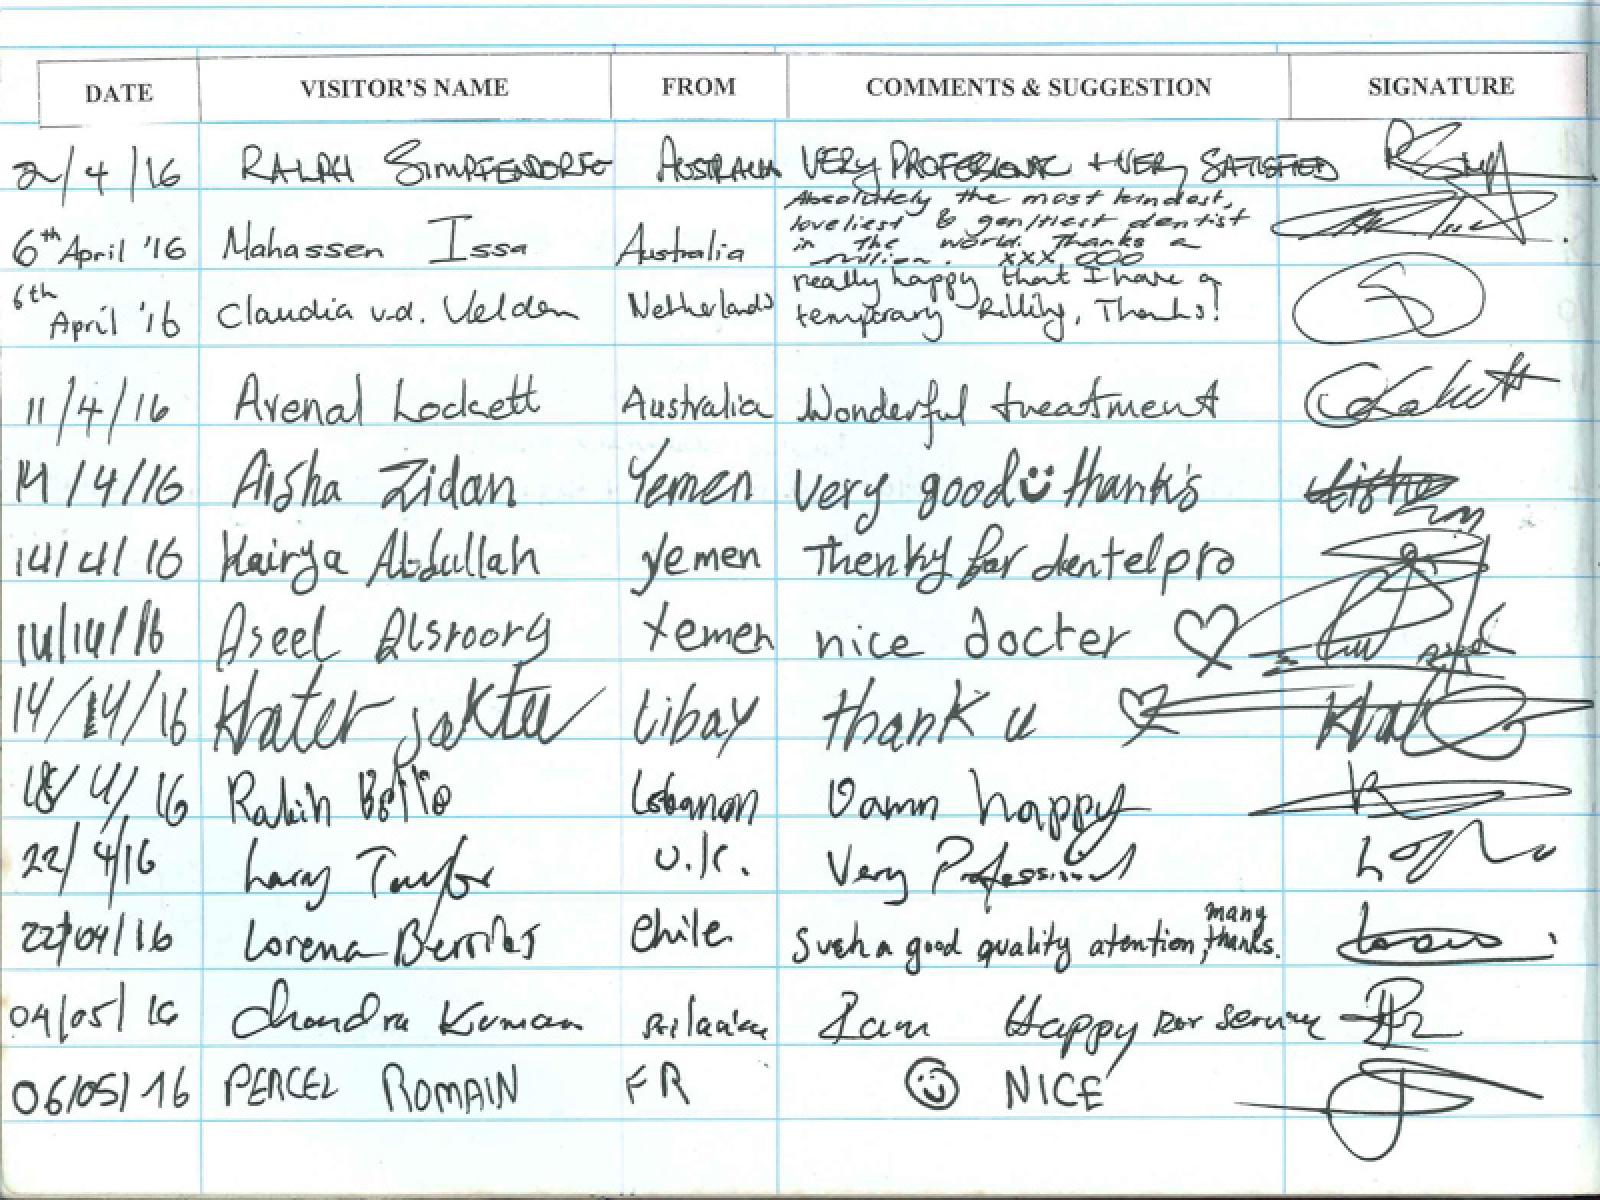 DATE VISITOR'S NAME FROM COMMENTS & SUGGESTION SIGNATURE
2/4/16 RALPH SIMPFENDORFE AUSTRALIA VERY PROFESSIONAL + VERY SATISFIED
6th April '16 Mahassen Issa Australia Absolutely the most kindest,
loveliest & gentliest dentist
in the world. Thanks a
million. xxx ooo
6th April '16 Claudia v.d. Velden Netherlands really happy that I have a
temporary filling, Thanks!
11/4/16 Arenal Lockett Australia Wonderful treatment
14/4/16 Aisha Zidan Yemen very good thanks
14/4/16 Kairya Abdullah yemen Thenky for dentelpro
14/14/16 Aseel Yemen nice docter
14/14/16 Khater Libay thank u
18/4/16 Rabih Lebanon Damn happy
22/4/16 Larry Taylor U.K. Very Professional
22/04/16 Lorena Chile Such a good quality atention, many thanks.
04/05/16 Chandra Kumara Srilanka I am Happy service
06/05/16 PERCEL ROMAIN FR NICE